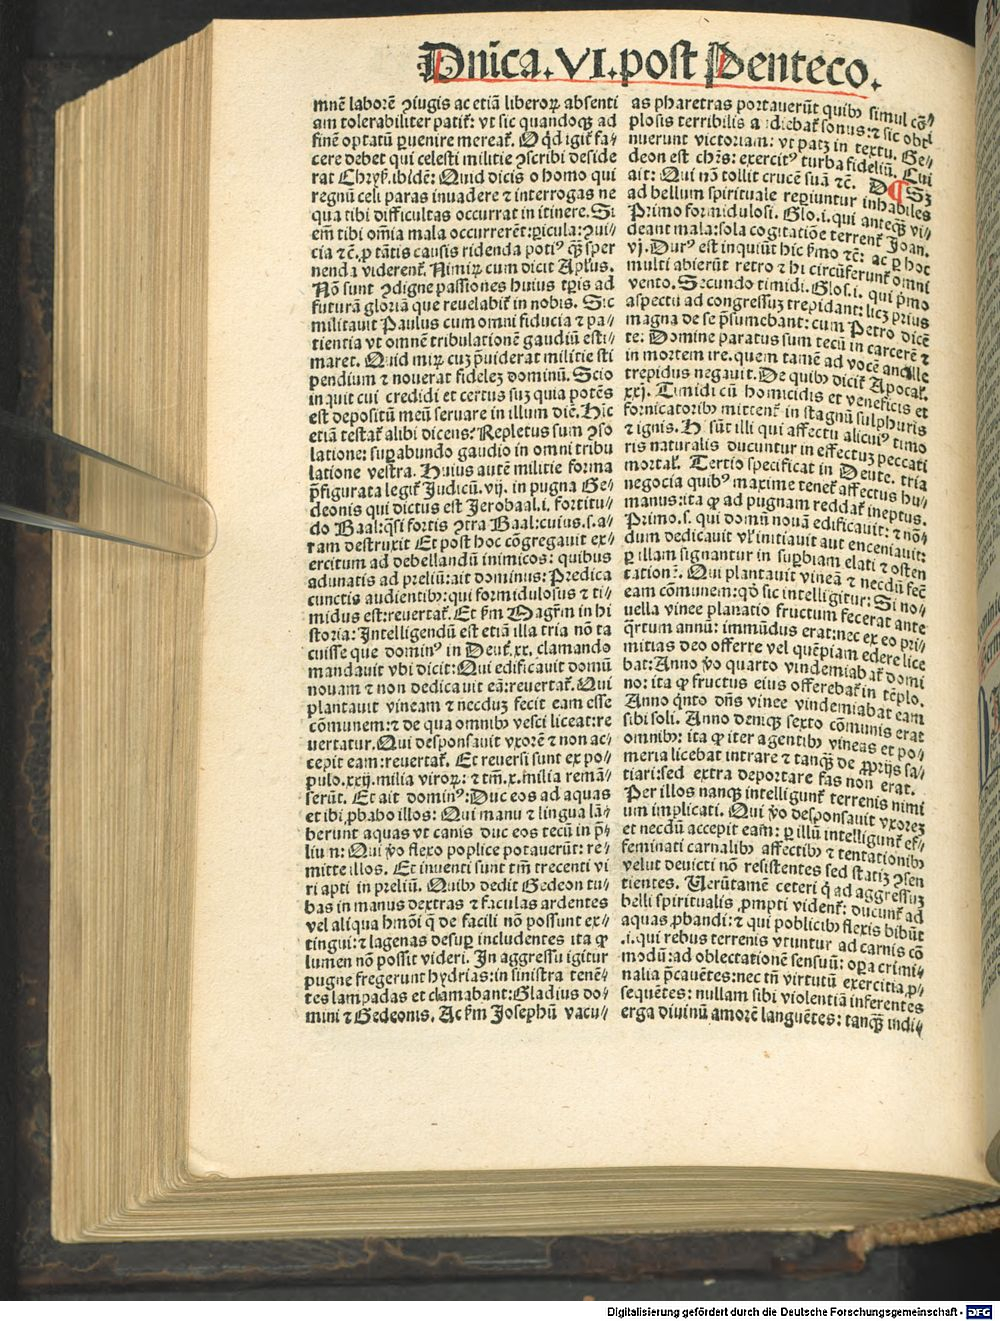 Dnica.VI.post Penteco.
mnē laborē ꝯiugis ac etiā liberoꝝ absenti
am tolerabiliter patit᷑: vt sic quandoqꝫ ad
finē optatū ꝑuenire mereat᷑. O qͥd igit᷑ fa-
cere debet qui celesti militie ꝯscribi deside
rat Chryſ. ibidē: Quid dicis o homo qui
regnū celi paras inuadere ⁊ interrogas ne
qua tibi difficultas occurrat in itinere. Si
em̄ tibi om̄ia mala occurrerēt: ꝑicula: ꝯui-
cia ⁊c̄. ꝓ tātis causis ridenda potiꝰ qͣꝫ sper
nenda viderent᷑. Nimiꝝ cum dicit Apl̄us.
Nō sunt ꝯdigne passiones huius tp̄is ad
futurā gloriā que reuelabit᷑ in nobis. Sic
militauit Paulus cum omni fiducia ⁊ pa-
tientia vt omnē tribulationē gaudiū esti-
maret. Quid miꝝ cuꝫ p̄uiderat militie sti
pendium ⁊ nouerat fideleꝫ dominū. Scio
inquit cui credidi et certus suꝫ quia potēs
est depositū meū seruare in illum diē. Hic
etiā testat᷑ alibi dicens: Repletus sum ꝯso
latione: suꝑabundo gaudio in omni tribu
latione vestra. Huius autē militie forma
p̄figurata legit᷑ Judicū. vij. in pugna Ge-
deonis qui dictus est Jerobaal .i. fortitu-
do Baal: qͣsi fortis ꝯtra Baal: cuius .s. a-
ram destruxit Et post hoc cōgregauit ex-
ercitum ad debellandū inimicos: quibus
adunatis ad preliū: ait dominus: Predica
cunctis audientibꝰ: qui formidulosus ⁊ ti-
midus est: reuertat᷑. Et ẜm Magr̄m in hi
storia: Intelligendū est etiā illa tria nō ta
cuisse que dominꝰ in Deut᷑. xx. clamando
mandauit vbi dicit: Qui edificauit domū
nouam ⁊ non dedicauit eā: reuertat᷑. Qui
plantauit vineam ⁊ necduꝫ fecit eam esse
cōmunem: ⁊ de qua omnibꝰ vesci liceat: re
uertatur. Qui desponsauit vxorē ⁊ non ac-
cepit eam: reuertat᷑. Et reuersi sunt ex po-
pulo .xxij. milia viroꝝ: ⁊ tm̄ .x. milia remā-
serūt. Et ait dominꝰ: Duc eos ad aquas
et ibi ꝓbabo illos: Qui manu ⁊ lingua lā-
berunt aquas vt canis duc eos tecū in p̄-
liuꝫ: Qui v̊o flexo poplice potauerūt: re-
mitte illos. Et inuenti sunt tm̄ trecenti vi
ri apti in preliū. Quibꝰ dedit Gedeon tu-
bas in manus dextras ⁊ faculas ardentes
vel aliqua hmōi q̄ de facili nō possunt ex-
tingui: ⁊ lagenas desuꝑ includentes ita ꝙ
lumen nō possit videri. In aggressu igitur
pugne fregerunt hydrias: in sinistra tenē-
tes lampadas et clamabant: Gladius do-
mini ⁊ Gedeonis. Ac ẜm Josephū vacu-
as pharetras portauerūt quibꝰ simul cō-
plosis terribilis audiebat᷑ sonus: ⁊ sic obti
nuerunt victoriam: vt patꝫ in textu. Ge-
deon est chr̄s: exercitꝰ turba fideliū. Cui
ait: Qui nō tollit crucē suā ⁊c̄. ¶ Sꝫ
ad bellum spirituale reꝑiuntur inhabiles
Primo formidulosi. Glo. i. qui anteqͣꝫ vi-
deant mala: sola cogitatiōe terrent᷑ Joan.
vj. Durꝰ est inquiūt hic ẜmo ⁊c̄: ac ꝑ hoc
multi abierūt retro ⁊ hi circūferunt᷑ omni
vento. Secundo timidi. Glos. i. qui pͥmo
aspectu ad congressuꝫ trepidant: licꝫ prius
magna de se p̄sumebant: cum Petro dicē
te: Domine paratus sum tecū in carcerē ⁊
in mortem ire. quem tamē ad vocē ancille
trepidus negauit. De quibꝰ dicit᷑ Apocal᷑.
xxj. Timidi cū homicidis et veneficis et
fornicatoribꝰ mittent᷑ in stagnū sulphuris
⁊ ignis. Hi sūt illi qui affectu alicuiꝰ timo
ris naturalis ducuntur in effectuꝫ peccati
mortal᷑. Tertio specificat in Deute. tria
negocia quibꝰ maxime tenet᷑ affectus hu-
manus: ita ꝙ ad pugnam reddat᷑ ineptus.
Primo .s. qui domū nouā edificauit: ⁊ nō-
dum dedicauit vl᷑ initiauit aut enceniauit:
ꝑ illam signantur in suꝑbiam elati ⁊ osten
tationē. Qui plantauit vineā ⁊ necdū fec̄
eam cōmunem: qd̄ sic intelligitur: Si no-
uella vinee plantatio fructum fecerat ante
qͣrtum annū: immūdus erat: nec ex eo pri-
mitias deo offerre vel quēpiam edere lice
bat: Anno v̊o quarto vindemiabat᷑ domi
no: ita ꝙ fructus eius offerebat᷑ in tēplo.
Anno qͥnto dn̄s vinee vindemiabat eam
sibi soli. Anno deniqꝫ sexto cōmunis erat
omnibꝰ: ita ꝙ iter agentibꝰ vineas et po-
meria licebat intrare ⁊ tanqͣꝫ de ꝓprijs sa-
tiari: sed extra deportare fas non erat.
Per illos nanqꝫ intelligunt᷑ terrenis nimi
um implicati. Qui v̊o desponsauit vxoreꝫ
et necdū accepit eam: ꝑ illū intelligunt᷑ ef-
feminati carnalibꝰ affectibꝰ ⁊ tentationibꝰ
velut deuicti nō resistentes sed statiꝫ ꝯsen
tientes. Verūtamē ceteri q̄ ad aggressuꝫ
belli spiritualis ꝓmpti vident᷑: ducunt᷑ ad
aquas ꝓbandi: ⁊ qui poblicibꝰ flexis bibūt
.i. qui rebus terrenis vtuntur ad carnis cō
modū: ad oblectationē sensuū: oꝑa crimi-
nalia p̄cauētes: nec tn̄ virtutū exercitia ꝓ-
sequētes: nullam sibi violentiā inferentes
erga diuinū amorē languētes: tanqͣꝫ indi-
Digitalisierung gefördert durch die Deutsche Forschungsgemeinschaft - DFG